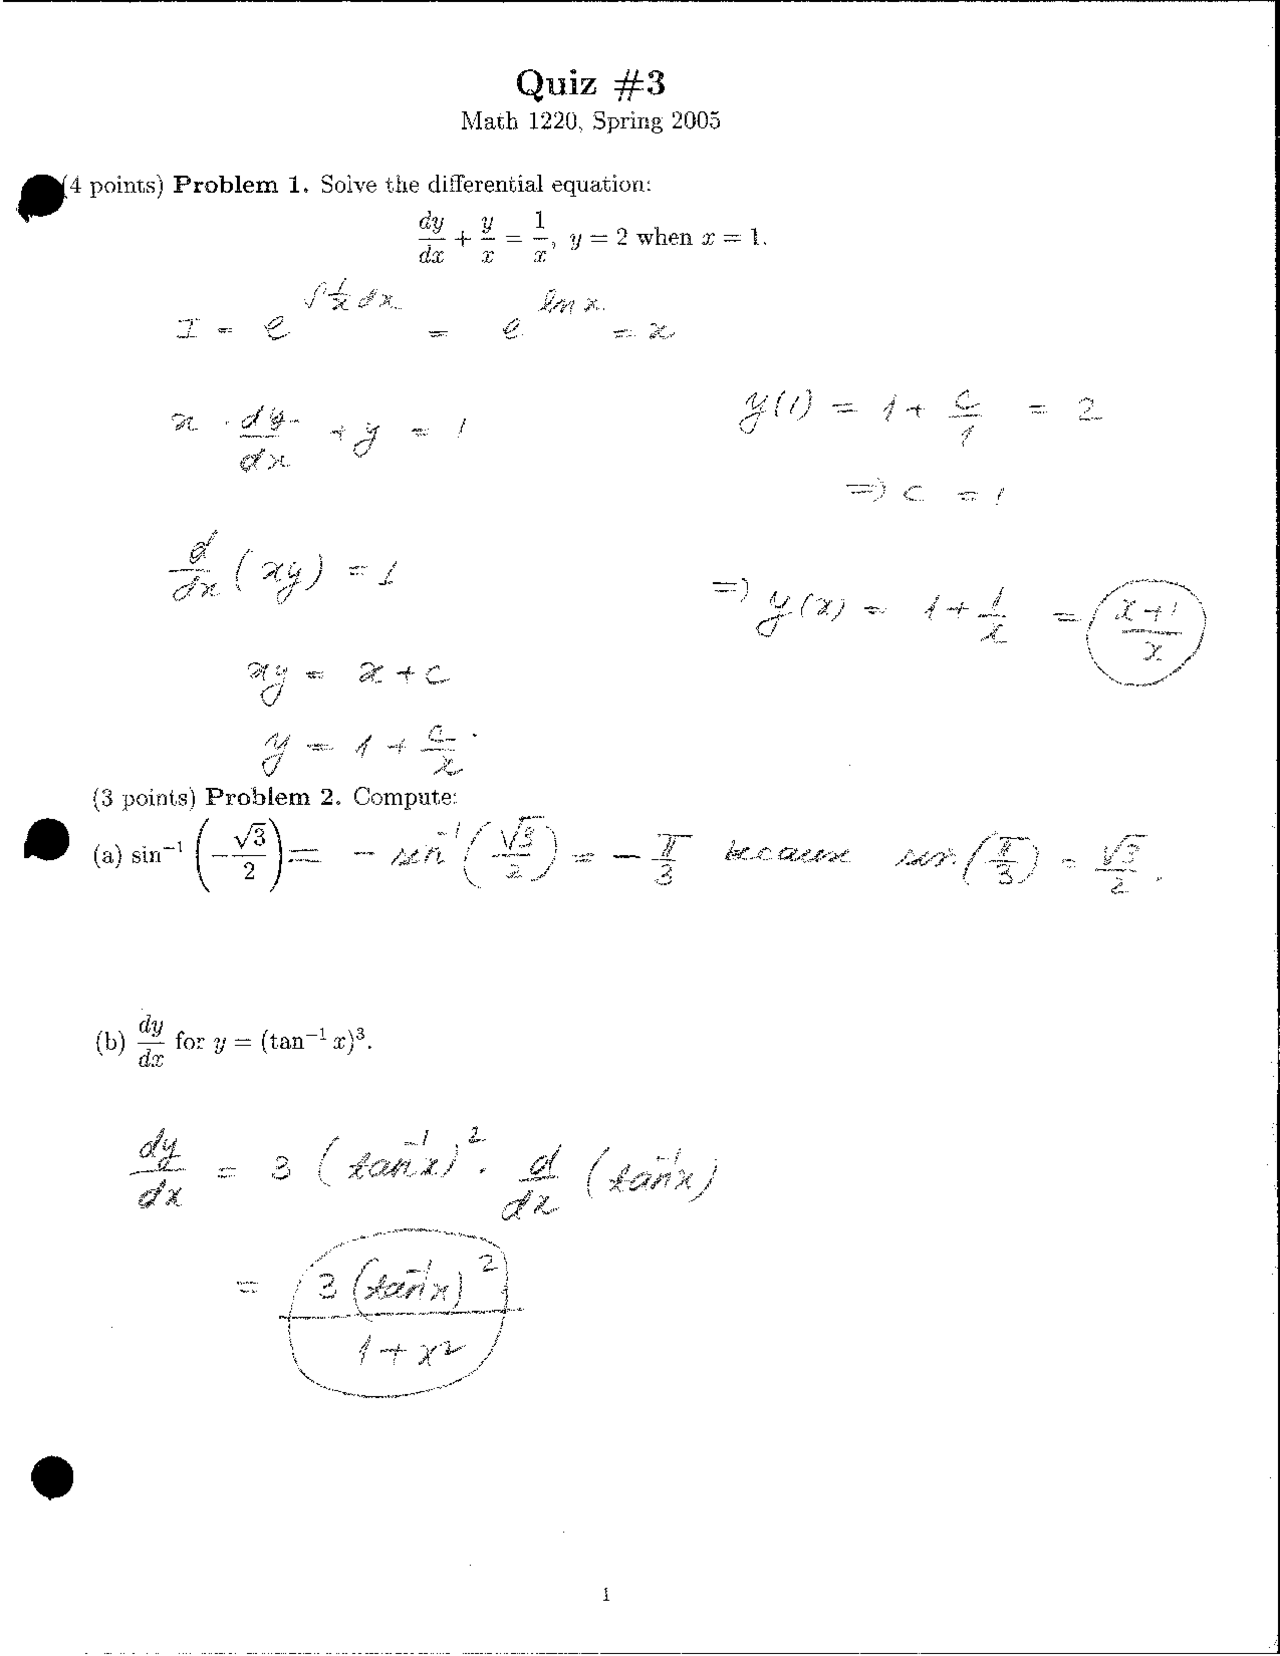 Quiz #3
Math 1220, Spring 2005
(4 points) Problem 1. Solve the differential equation:
dy/dx + y/x = 1/x, y = 2 when x = 1.
I = e^{∫ 1/x dx} = e^{ln x} = x
x · dy/dx + y = 1
d/dx (xy) = 1
xy = x + c
y = 1 + c/x
y(1) = 1 + c/1 = 2
⇒ c = 1
⇒ y(x) = 1 + 1/x = (x+1)/x
(3 points) Problem 2. Compute:
(a) sin⁻¹(−√3/2) = − sin⁻¹(√3/2) = − π/3 because sin(π/3) = √3/2.
(b) dy/dx for y = (tan⁻¹ x)³.
dy/dx = 3 (tan⁻¹x)² · d/dx (tan⁻¹x)
= 3 (tan⁻¹x)² / (1 + x²)
1